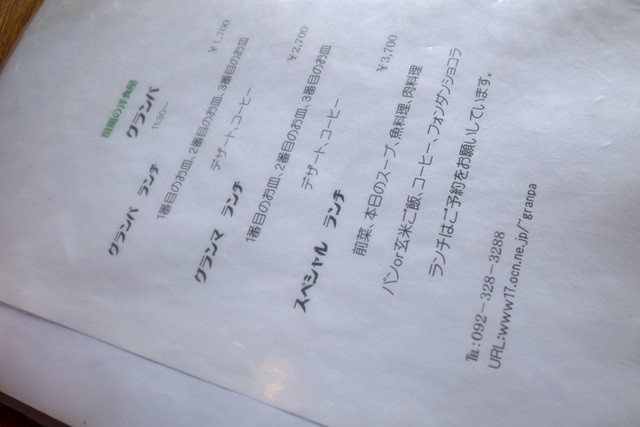 の洋食屋
グランパ
11:30～
グランパ ランチ ￥1,700
1番目のお皿、2番目のお皿、3番目のお皿
デザート、コーヒー
グランマ ランチ ￥2,700
1番目のお皿、2番目のお皿、3番目のお皿
デザート、コーヒー
スペシャル ランチ ￥3,700
前菜、本日のスープ、魚料理、肉料理
パンor玄米ご飯、コーヒー、フォンダンショコラ
ランチはご予約をお願いしています。
℡:092－328－3288
URL:www17.ocn.ne.jp/~granpa